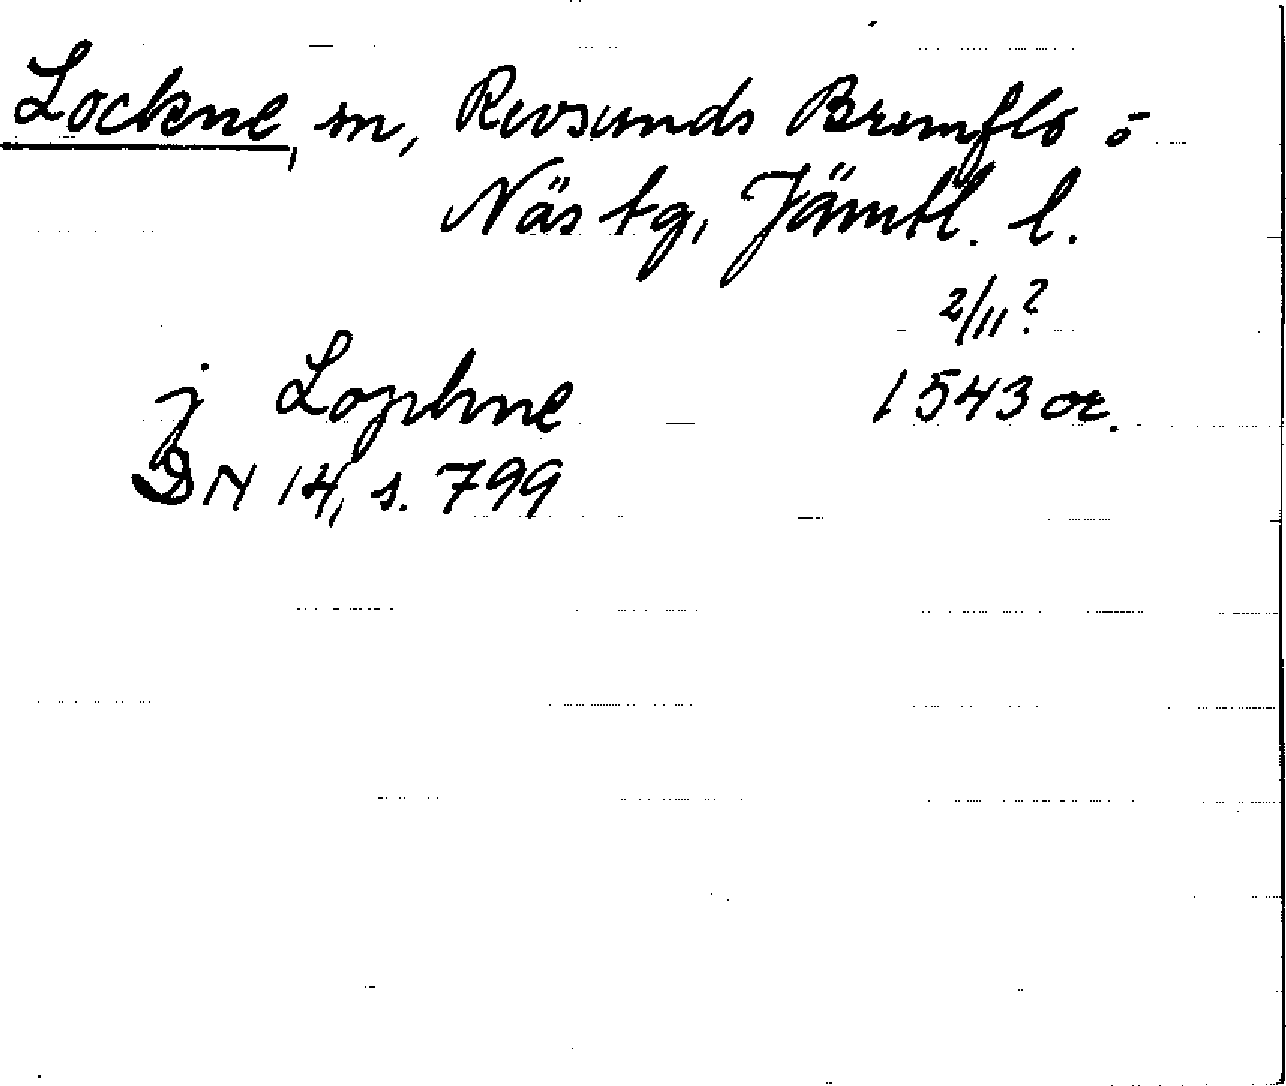 Lockne, sn, Revsunds Brunflo o
Näs tg, Jämtl. l.
2/11?
j Lophne 1543 or.
DN 14, s. 799